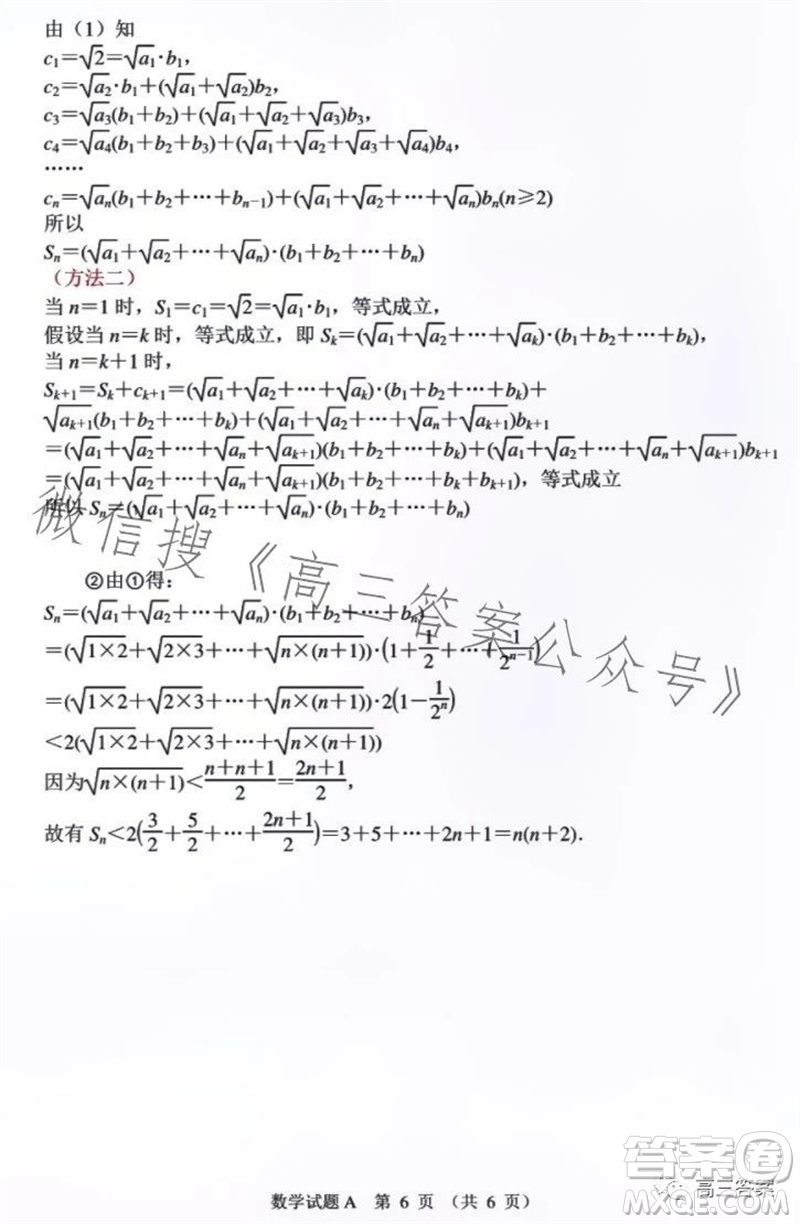 由（1）知
c₁=√2=√a₁·b₁,
c₂=√a₂·b₁+(√a₁+√a₂)b₂,
c₃=√a₃(b₁+b₂)+(√a₁+√a₂+√a₃)b₃,
c₄=√a₄(b₁+b₂+b₃)+(√a₁+√a₂+√a₃+√a₄)b₄,
……
cₙ=√aₙ(b₁+b₂+…+bₙ₋₁)+(√a₁+√a₂+…+√aₙ)bₙ(n≥2)
所以
Sₙ=(√a₁+√a₂+…+√aₙ)·(b₁+b₂+…+bₙ)
（方法二）
当 n=1 时，S₁=c₁=√2=√a₁·b₁，等式成立，
假设当 n=k 时，等式成立，即 Sₖ=(√a₁+√a₂+…+√aₖ)·(b₁+b₂+…+bₖ),
当 n=k+1 时，
Sₖ₊₁=Sₖ+cₖ₊₁=(√a₁+√a₂+…+√aₖ)·(b₁+b₂+…+bₖ)+
√aₖ₊₁(b₁+b₂+…+bₖ)+(√a₁+√a₂+…+√aₙ+√aₖ₊₁)bₖ₊₁
=(√a₁+√a₂+…+√aₙ+√aₖ₊₁)(b₁+b₂+…+bₖ)+(√a₁+√a₂+…+√aₙ+√aₖ₊₁)bₖ₊₁
=(√a₁+√a₂+…+√aₙ+√aₖ₊₁)(b₁+b₂+…+bₖ+bₖ₊₁)，等式成立
所以 Sₙ=(√a₁+√a₂+…+√aₙ)·(b₁+b₂+…+bₙ)
微信搜《高三答案公众号》
②由①得：
Sₙ=(√a₁+√a₂+…+√aₙ)·(b₁+b₂+…+bₙ)
=(√(1×2)+√(2×3)+…+√(n×(n+1)))·(1+1/2+…+1/2ⁿ⁻¹)
=(√(1×2)+√(2×3)+…+√(n×(n+1)))·2(1−1/2ⁿ)
<2(√(1×2)+√(2×3)+…+√(n×(n+1)))
因为√(n×(n+1))<(n+n+1)/2=(2n+1)/2,
故有 Sₙ<2(3/2+5/2+…+(2n+1)/2)=3+5+…+2n+1=n(n+2).
数学试题A 第 6 页 （共 6 页）
答案圈
高三答案
MXQE.COM